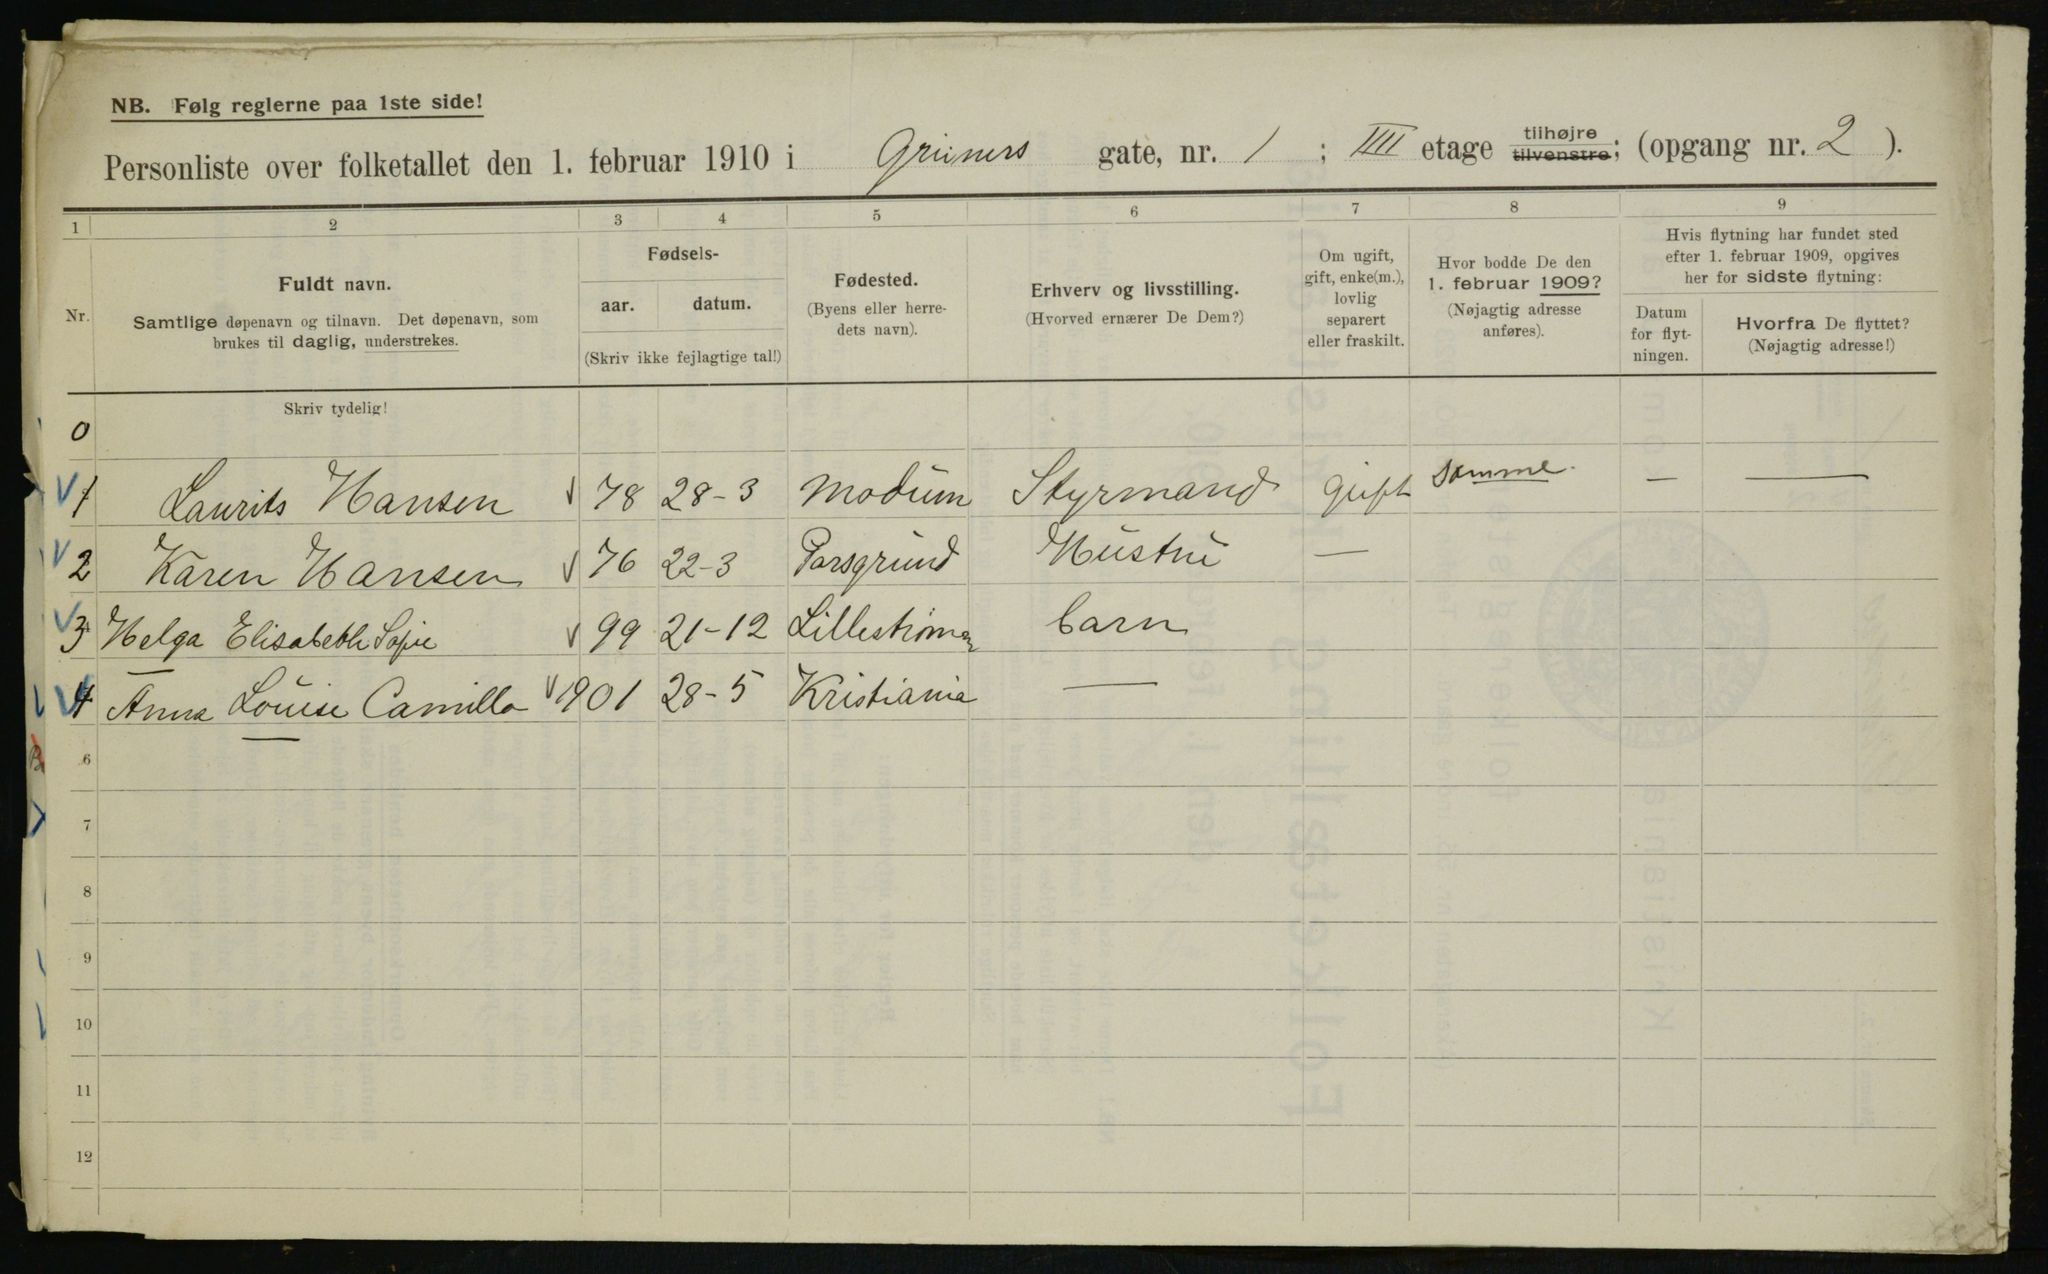 NB. Følg reglerne paa 1ste side!
Personliste over folketallet den 1. februar 1910 i Grüners gate, nr. 1 ; IIII etage tilhøjre tilvenstre; (opgang nr. 2 ).
1 2 3 4 5 6 7 8 9
Nr.
Fuldt navn.
Samtlige døpenavn og tilnavn. Det døpenavn, som
brukes til daglig, understrekes.
Skriv tydelig!
Fødsels-
aar. datum.
(Skriv ikke fejlagtige tal!)
Fødested.
(Byens eller herre-
dets navn).
Erhverv og livsstilling.
(Hvorved ernærer De Dem?)
Om ugift,
gift, enke(m.),
lovlig
separert
eller fraskilt.
Hvor bodde De den
1. februar 1909?
(Nøjagtig adresse
anføres).
Hvis flytning har fundet sted
efter 1. februar 1909, opgives
her for sidste flytning:
Datum
for flyt-
ningen.
Hvorfra De flyttet?
(Nøjagtig adresse!)
0
1 Laurits Hansen 78 28-3 Modum Styrmand gift samme. — —
2 Karen Hansen 76 22-3 Porsgrund Hustru —
3 Helga Elisabeth Sofie 99 21-12 Lillestrømen barn
4 Anna Louise Camilla 1901 28-5 Kristiania —
6
7
8
9
10
11
12